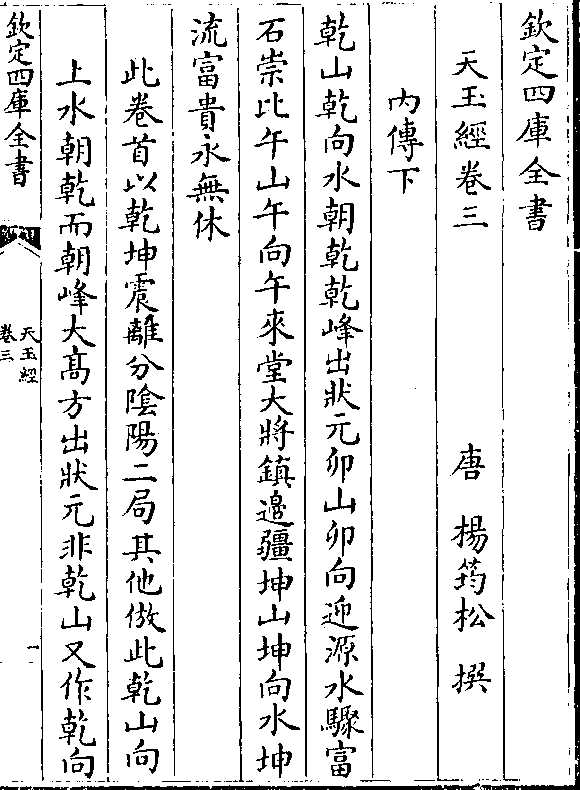 欽定四庫全書
天玉經卷三
唐 楊筠松 撰
内傳下
乾山乾向水朝乾乾峰出狀元卯山卯向迎源水驟富
石崇比午山午向午來堂大將鎮邉疆坤山坤向水坤
流富貴永無休
此卷首以乾坤震離分陰陽二局其他倣此乾山向
上水朝乾而朝峰大髙方出狀元非乾山又作乾向
欽定四庫全書
天玉經
卷三
一